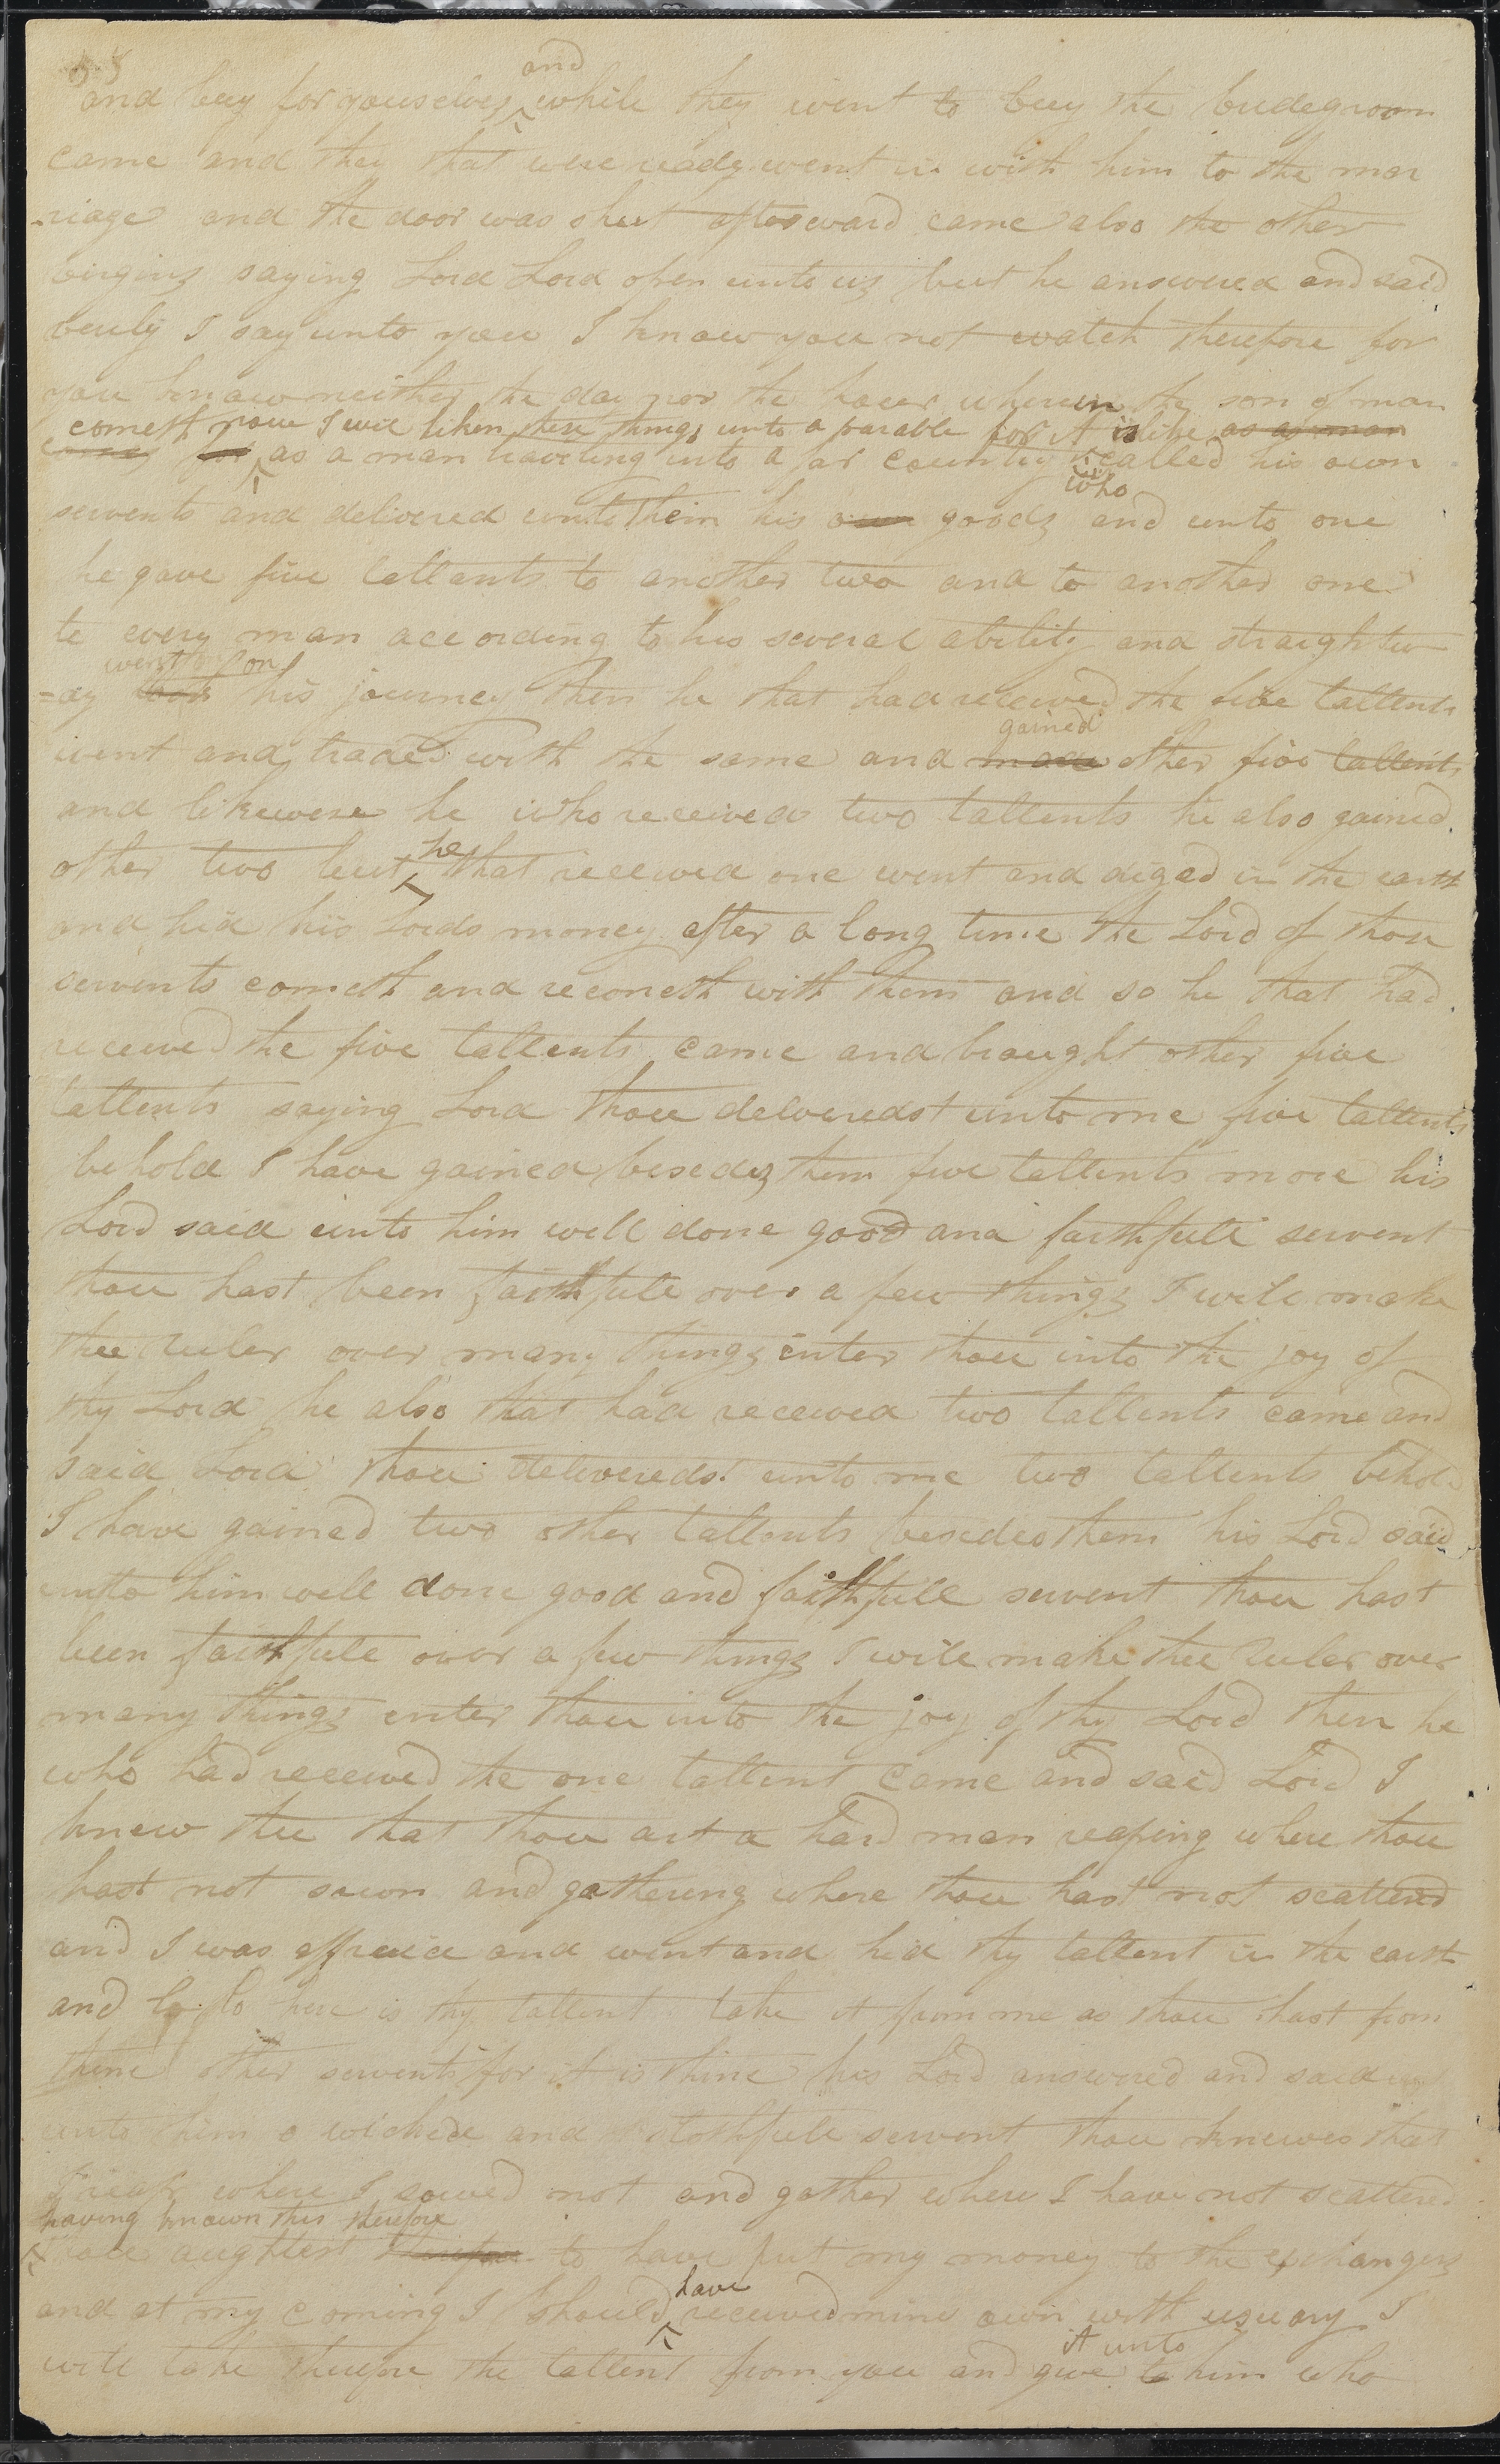 and
and buy for youselves while they went to buy the bridegroom
came and they that were ready went in with him to the mar
-riage and the door was shut afterward came also the other
virgins saying Lord Lord open unto us but he answered and said
veryly I say unto you I know you not watch therefore for
you know neither the day nor the hour wherein the son of man
cometh now I will liken these things unto a parable for it is like as a man
comes for as a man traveling into a far country called his own
who
servents and delivered unto them his own goods and unto one
he gave five tallents to another two and to another one
to every man according to his several ability and straightw
went on
-ay took his journey then he that had received the five tallents
gained
went and traded with the same and made other five tallents
and likewese he who received two tallents he also gained
he
other two but that received one went and diged in the earth
and hid his Lords money after a long time the Lord of those
servents cometh and reconeth with them and so he that had
received the five tallents came and braught other five
tallents saying Lord thou deliveredst unto me five tallents
behold I have gained besides them five tallents more his
Lord said unto him well done good and faithfull servent
thou hast been faithfull over a few things I will make
thee ruler over many things enter thou into the joy of
thy Lord he also that had received two tallents came and
said Lord thou deliveredst unto me two tallents behold
I have gained two other tallents besides them his Lord said
unto him well done good and faithfull servent thou hast
been faithfull over a few things I will make thee ruler over
many things enter thou into the joy of thy Lord then he
who had received the one tallent came and said Lord I
knew thee that thou art a hard man reaping where thou
hast not sown and gathering where thou hast not scattered
and I was affraid and went and hid thy tallent in the earth
and lo here is thy tallent take it from me as thou hast from
thine other servents for it is thine his Lord answered and said
unto him o wicked and slothfull servent thou knewes that
I reap where I sowed not and gather where I have not scattered
having known this therefore
thou aughtest therefore to have put my money to the exchangers
have
and at my coming I should received mine own with usuary I
it unto
will take therefore the tallent from you and give to him who